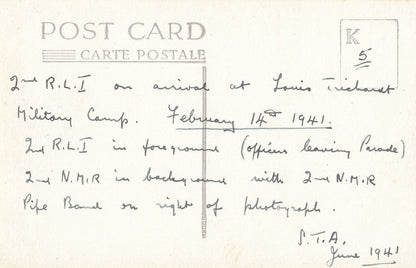 POST CARD
CARTE POSTALE
K
5
2nd R.L.I on arrival at Louis Trichardt
Military Camp. February 14th 1941.
2nd R.L.I in foreground (officers leaving Parade)
2nd N.M.R in background with 2nd N.M.R
Pipe Band on right of photograph.
S.T.A.
June 1941